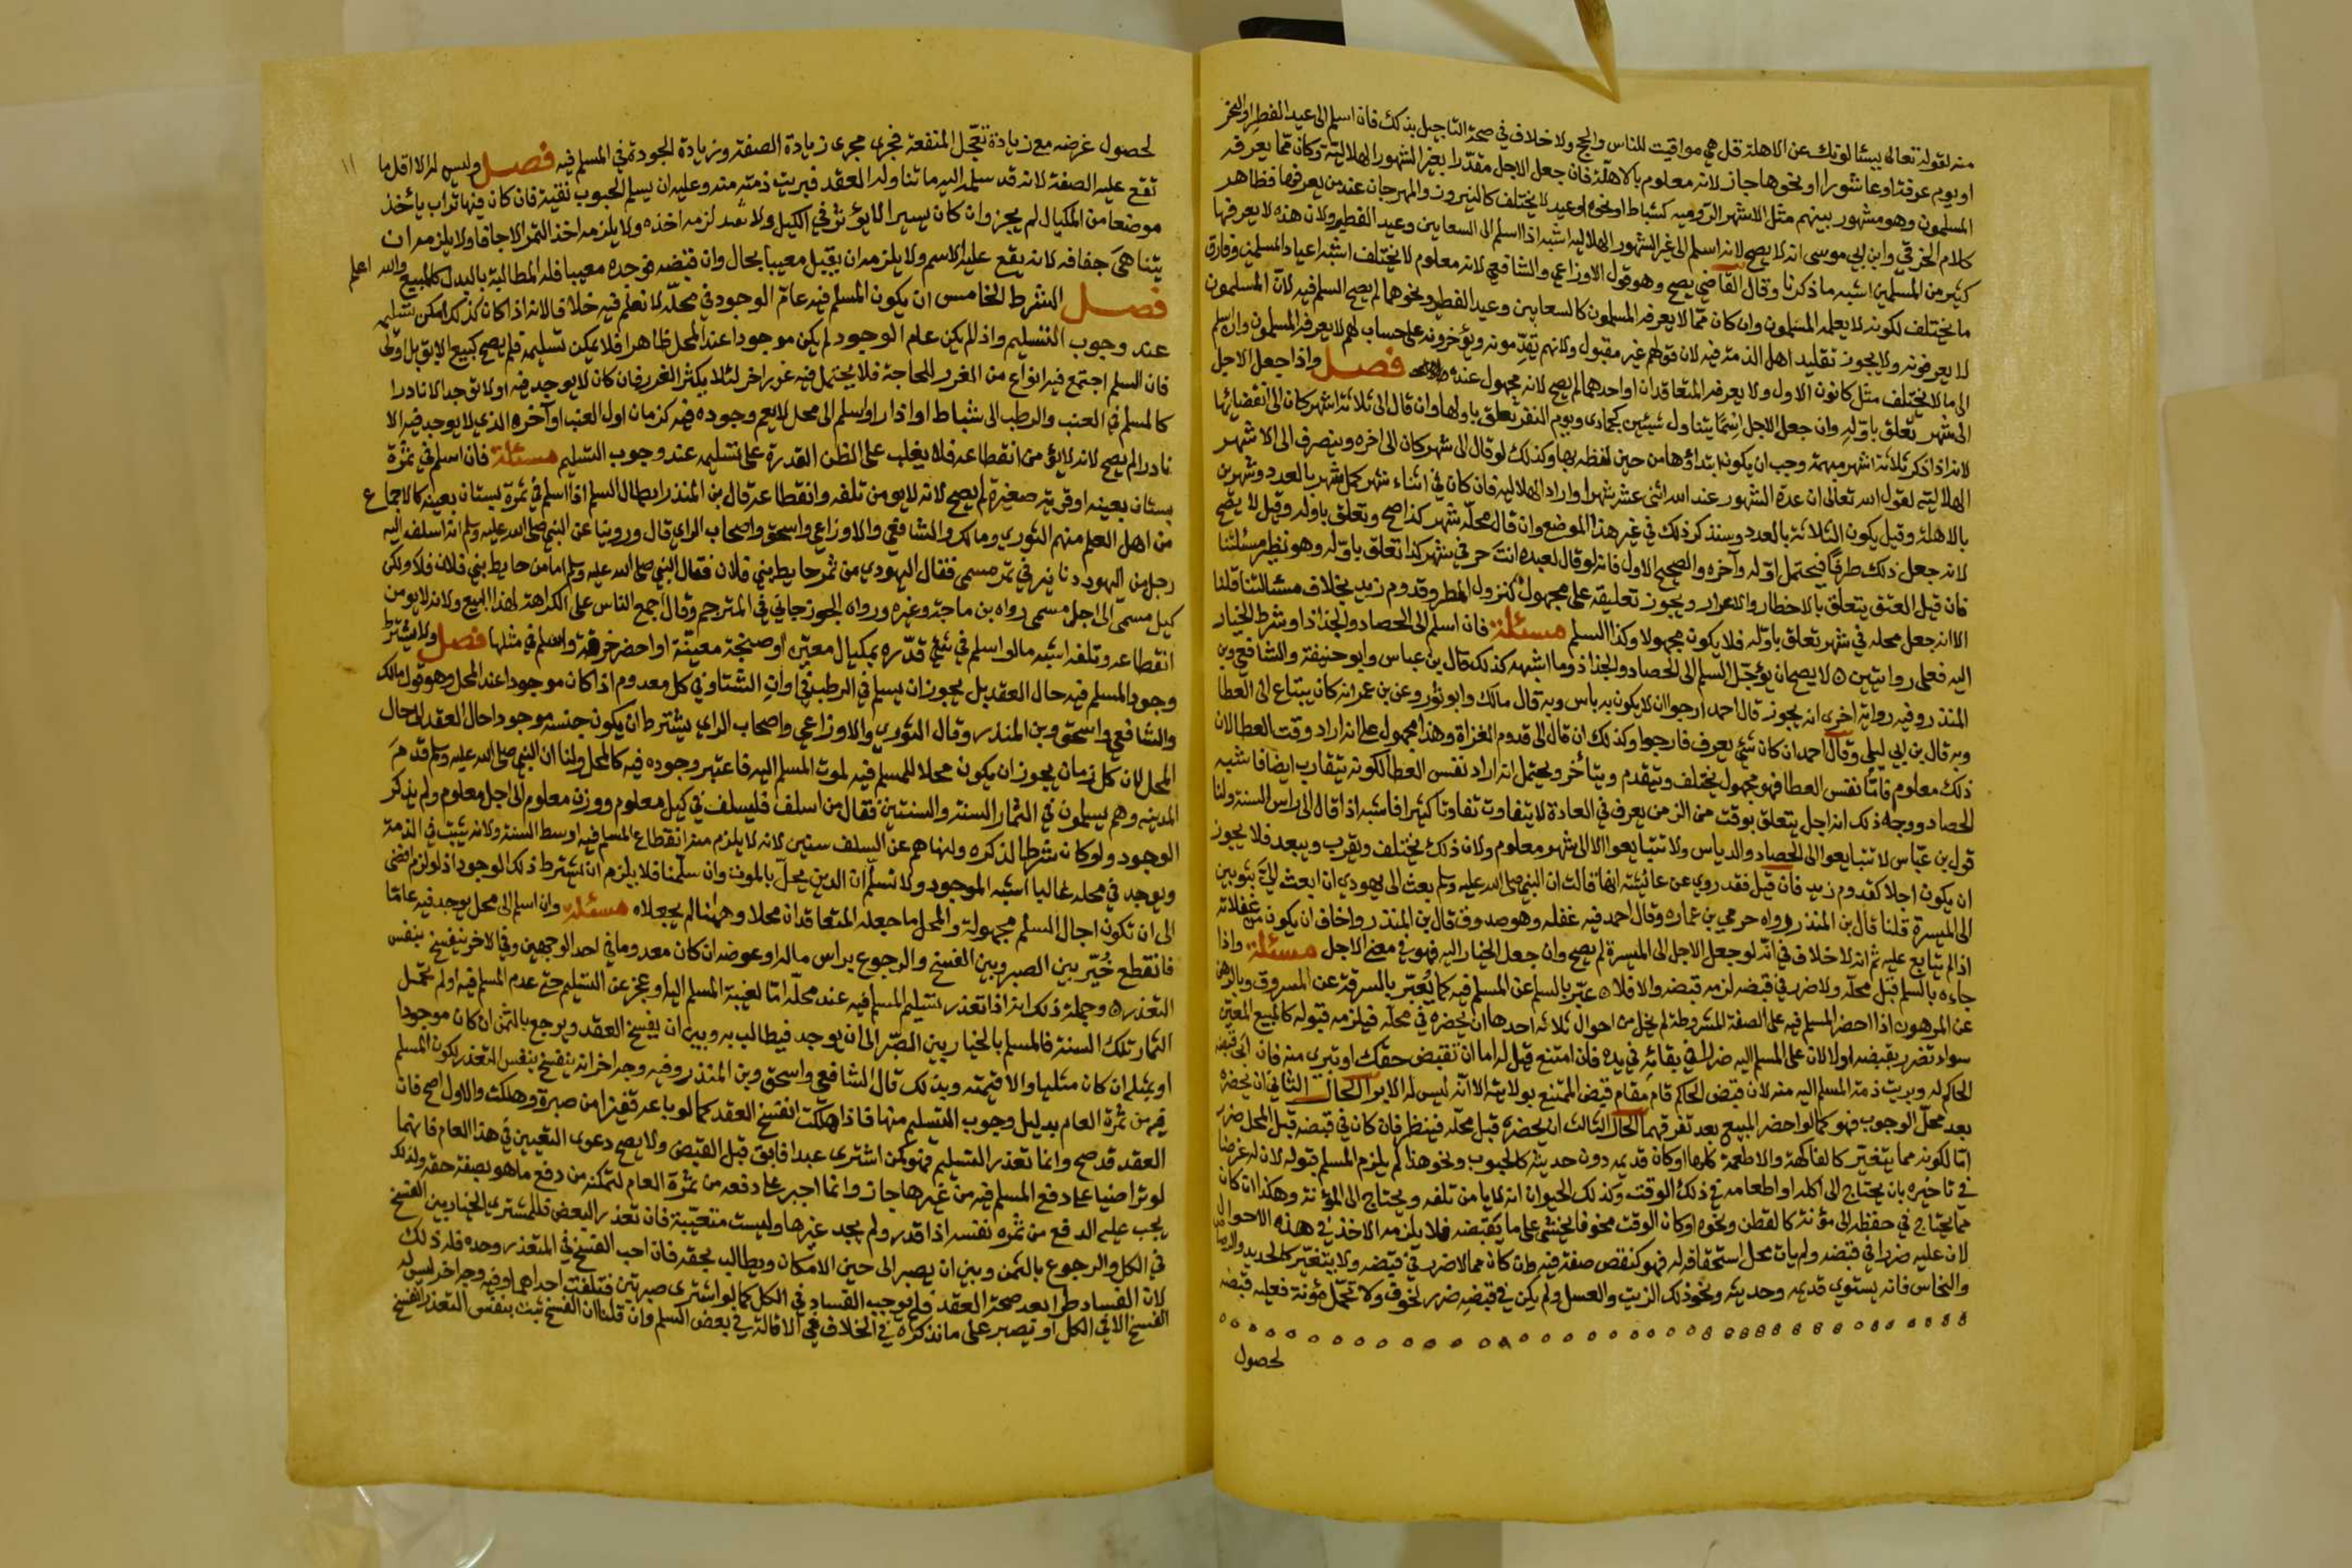 منه لقوله تعالى يسئالونك عن الاهلة قل هي مواقيت للناس والحج ولا خلاف في صحة التاجيل بذلك فان اسلم الى عيد الفطر او النحر
او يوم عرفة او عاشورا او نحوها جاز لانه معلوم بالاهلة فان جعل الاجل مقدرا بغير الشهور الهلالية وكان مما يعرفه
المسلمون وهو مشهور بينهم مثل الاشهر الرومية كشباط او نحوه او عيد لا يختلف كالنيروز والمهرجان عند من يعرفهما فظاهر
كلام الخرقي وابن ابي موسى انه لا يصح لانه اسلم الى غير الشهور الهلاليه اشبه اذا اسلم الى السعانين وعيد الفطير ولان هذه لا يعرفها
كثير من المسلمين اشبه ما ذكرنا وقال القاضي يصح وهو قول الاوزاعي والشافعي لانه معلوم لا يختلف اشبه اعياد المسلمين وفارق
ما يختلف لكونه لا يعلمه المسلمون وان كان مما لا يعرفه المسلمون كالسعانين وعيد الفطير ونحوهما لم يصح السلم فيه لان المسلمون
لا يعرفونه ولا يجوز تقليد اهل الذمة فيه لان قولهم غير مقبول ولانهم يقدمونه ويؤخرونه على حساب لهم لا يعرفه المسلمون وان اسلم
الى ما لا يختلف مثل كانون الاول ولا يعرفه المتعاقدان او احدهما لم يصح لانه مجهول عنده فصل واذا جعل الاجل
الى شهر تعلق باوله وان جعل الاجل اسما يتناول شيئين كجمادى ويوم النفر تعلق باولها وان قال الى ثلاثة اشهر كان الى انقضائها
لانه اذا ذكر ثلاثة اشهر مبهمة وجب ان يكون ابتداؤها من حين لفظه بها وكذلك لو قال الى شهر كان الى اخره وينصرف الى الاشهر
الهلالية لقول الله تعالى ان عدة الشهور عند الله اثنى عشر شهرا واراد الهلاليه فان كان في اثناء شهر كمل شهر بالعدد وشهرين
بالاهلة وقيل يكون الثلاثة بالعدد وسنذكر ذلك في غير هذا الموضع وان قال محله شهر كذا صح وتعلق باوله وقيل لا يصح
لانه جعل ذلك ظرفا فيحتمل اوله وآخره والصحيح الاول فانه لو قال لعبده انت حر في شهر كذا تعلق باوله وهو نظير مسئلتنا
فان قيل العتق يتعلق بالاخطار والاغرار ويجوز تعليقه على مجهول كنزول المطر وقدوم زيد بخلاف مسئالتنا قلنا
الا انه جعل محله في شهر تعلق باوله فلا يكون مجهولا وكذا السلم مسئلة فان اسلم الى الحصاد والجذاذ او شرط الخيار
اليه فعلى روايتين ٥ لا يصح ان يؤجل السلم الى الحصاد والجذاذ وما اشبهه كذلك قال بن عباس وابو حنيفة والشافعي وبن
المنذر وفيه رواية اخرى انه يجوز قال احمد ارجو ان لا يكون به باس وبه قال مالك وابو ثور وعن بن عمر انه كان يبتاع الى العطا
وبه قال بن ابي ليلى وقال احمد ان كان شئ يعرف فارجو وكذلك ان قال الى قدوم الغزاة وهذا محمول على انه اراد وقت العطا لان
ذلك معلوم فاما نفس العطا فهو مجهول يختلف ويتقدم ويتأخر ويحتمل انه اراد نفس العطا لكونه يتقارب ايضا فاشبه
الحصاد ووجه ذلك انه اجل يتعلق بوقت من الزمن يعرف في العادة لا يتفاوت تفاوتا كثيرا فاشبه اذا قال الى راس السنة ولنا
قول بن عباس لا تتبايعوا الى الحصاد والدياس ولا تتبايعوا الا الى شهر معلوم ولان ذلك يختلف ويقرب ويبعد فلا يجوز
ان يكون اجلا كقدوم زيد فان قيل فقد روي عن عائشة انها قالت ان النبي صلى الله عليه وسلم بعث الى يهودي ان ابعث لي بثوبين
الى الميسرة قلنا قال بن المنذر رواه حرمي بن عماره وقال احمد فيه غفله وهو صدوق قال بن المنذر واخاف ان يكون من غفلاته
اذ لم يتابع عليه ثم انه لا خلاف في انه لو جعل الاجل الى الميسرة لم يصح وان جعل الخيار اليه فهو في معنى الاجل مسئلة واذا
جاءه بالسلم قبل محله ولا ضرر في قبضه لزمه قبضه والا فلا ٥ عبر بالسلم عن المسلم فيه كما يعبر بالسرقة عن المسروق وبالرهن
عن المرهون اذا احضر المسلم فيه على الصفة المشروطة لم يخل من احوال ثلاثه احدها ان يحضره في محله فيلزمه قبوله كالمبيع المعين
سواء تضرر بقبضه او لا لان على المسلم اليه ضرر في بقائه في يده فان امتنع قيل له اما ان تقبض حقك او تبرئ منه فان ابى قبضه
الحاكم له وبريت ذمة المسلم اليه منه لان قبض الحاكم قام مقام قبض الممتنع بولايته الا انه ليس له الابرا الحال الثاني ان يحضره
بعد محل الوجوب فهو كما لو احضر المبيع بعد تفرقهما الحال الثالث ان يحضره قبل محله فينظر فان كان في قبضه قبل المحل ضرر
اما لكونه مما يتغير كالفاكهة والاطعمة كلها او كان قديمه دون حديثه كالحبوب ونحو هذا لم يلزم المسلم قبوله لان له غرضا
في تاخيره بان يحتاج الى اكله او اطعامه في ذلك الوقت وكذلك الحيوان انه لا يامن تلفه ويحتاج الى المؤنة وهكذا ان كان
مما يحتاج في حفظه الى مؤنة كالقطن ونحوه او كان الوقت مخوفا يخشى على ما يقبضه فلا يلزمه الاخذ في هذه الاحوال
لان عليه ضررا في قبضه ولم يات محل استحقاقه له فهو كنقص صفة فيه وان كان مما لا ضرر في قبضه ولا يتغير كالحديد والرصاص
والنحاس فانه يستوي قديمه وحديثه ونحو ذلك الزيت والعسل ولم يكن في قبضه ضرر لخوف ولا تحمل مؤنة فعليه قبضه
لحصول
١١
لحصول غرضه مع زيادة تعجل المنفعة فجرى مجرى زيادة الصفة وزيادة الجودة في المسلم فيه فصل وليس له الا اقل ما
تقع عليه الصفة لانه قد سلم اليه ما تناوله العقد فبريت ذمته منه وعليه ان يسلم الحبوب نقية فان كان فيها تراب يأخذ
موضعا من المكيال لم يجز وان كان يسيرا لا يؤثر في الكيل ولا يعد لزمه اخذه ولا يلزمه اخذ التمر الا جافا ولا يلزمه ان
يتناهى جفافه لانه يقع عليه الاسم ولا يلزمه ان يقبل معيبا بحال وان قبضه فوجده معيبا فله المطالبة بالبدل كالمبيع والله اعلم
فصل الشرط الخامس ان يكون المسلم فيه عام الوجود في محله لا نعلم فيه خلافا لانه اذا كان كذلك امكن تسليمه
عند وجوب التسليم واذا لم يكن عام الوجود لم يكن موجودا عند المحل ظاهرا فلا يمكن تسليمه فلم يصح كبيع الابق بل اولى
فان السلم اجتمع فيه انواع من الغرر للحاجة فلا يحتمل فيه غرر اخر لئلا يكثر الغرر فان كان لا يوجد فيه او لا يوجد الا نادرا
كالمسلم في العنب والرطب الى شباط او اذار او اسلم الى محل لا يعم وجوده فيه كزمان اول العنب او آخره الذي لا يوجد فيه الا
نادرا لم يصح لانه لا يؤمن انقطاعه فلا يغلب على الظن القدرة على تسليمه عند وجوب التسليم مسئلة فان اسلم في ثمرة
بستان بعينه او قرية صغيرة لم يصح لانه لا يومن تلفه وانقطاعه قال بن المنذر ابطال السلم اذا اسلم في ثمرة بستان بعينه كالاجماع
من اهل العلم منهم الثوري ومالك والشافعي والاوزاعي واسحق واصحاب الراي قال وروينا عن النبي صلى الله عليه وسلم انه اسلف اليه
رجل من اليهود دنانير في تمر مسمى فقال اليهودي من ثمر حايط بني فلان فقال النبي صلى الله عليه وسلم اما من حايط بني فلان فلا ولكن
كيل مسمى الى اجل مسمى رواه بن ماجة وغيره ورواه الجوزجاني في المترجم وقال اجمع الناس على الكراهة لهذا البيع ولانه لا يومن
انقطاعه وتلفه اشبه ما لو اسلم في شئ قدره بمكيال معين او صنجة معينة او احضر خرقة واسلم في مثلها فصل ولا يشترط
وجود المسلم فيه حال العقد بل يجوز ان يسلم في الرطب في اوان الشتا وفي كل معدوم اذا كان موجودا عند المحل وهو قول مالك
والشافعي واسحق وبن المنذر وقال الثوري والاوزاعي واصحاب الراي يشترط ان يكون جنسه موجودا حال العقد الى حال
المحل لان كل زمان يجوز ان يكون محلا للمسلم فيه لموت المسلم اليه فاعتبر وجوده فيه كالمحل ولنا ان النبي صلى الله عليه وسلم قدم
المدينه وهم يسلمون في الثمار السنة والسنتين فقال من اسلف فليسلف في كيل معلوم ووزن معلوم الى اجل معلوم ولم يذكر
الوجود ولو كان شرطا لذكره ولنهاهم عن السلف سنين لانه لا يلزم منه انقطاع المسلم فيه اوسط السنة ولانه يثبت في الذمة
ويوجد في محله غالبا اشبه الموجود ولا نسلم ان الدين يحل بالموت وان سلمنا فلا يلزم ان نشترط ذلك الوجود اذ لو لزم افضى
الى ان تكون اجال السلم مجهولة والمحل ما جعله المتعاقدان محلا وههنا لم يجعلاه مسئلة وان اسلم الى محل يوجد فيه عاما
فانقطع خير بين الصبر وبين الفسخ والرجوع براس ماله او عوضه ان كان معدوما في احد الوجهين وفي الاخر ينفسخ بنفس
التعذر ٥ وجملة ذلك انه اذا تعذر تسليم المسلم فيه عند محله اما لغيبة المسلم اليه او عجز عن التسليم حتى عدم المسلم فيه او لم تحمل
الثمار تلك السنة فالمسلم بالخيار بين الصبر الى ان يوجد فيطالب به وبين ان يفسخ العقد ويرجع بالثمن ان كان موجودا
او بمثله ان كان مثليا والا قيمته وبذلك قال الشافعي واسحق وبن المنذر وفيه وجه اخر انه ينفسخ بنفس التعذر لكون المسلم
فيه من ثمرة العام بدليل وجوب التسليم منها فاذا هلكت انفسخ العقد كما لو باعه قفيزا من صبرة وهلكت والاول اصح فان
العقد قد صح وانما تعذر التسليم فهو كمن اشترى عبدا فابق قبل القبض ولا يصح دعوى التعيين في هذا العام فانهما
لو تراضيا على دفع المسلم فيه من غيرها جاز وانما اجبر على دفعه من ثمرة العام لتمكنه من دفع ما هو بصفة حقه ولذلك
يجب عليه الدفع من ثمره نفسه اذا قدر ولم يجد غيرها وليست متعينة فان تعذر البعض فللمشتري الخيار بين الفسخ
في الكل والرجوع بالثمن وبين ان يصبر الى حين الامكان ويطالب بحقه فان احب الفسخ في المتعذر وحده فله ذلك
لان الفساد طرا بعد صحة العقد فلم يوجب الفساد في الكل كما لو اشترى صبرتين فتلفت احداهما وفيه وجه اخر ليس له
الفسخ الا في الكل او يصبر على ما نذكره في الخلاف في الاقالة في بعض السلم وان قلنا ان الفسخ ثبت بنفس التعذر انفسخ